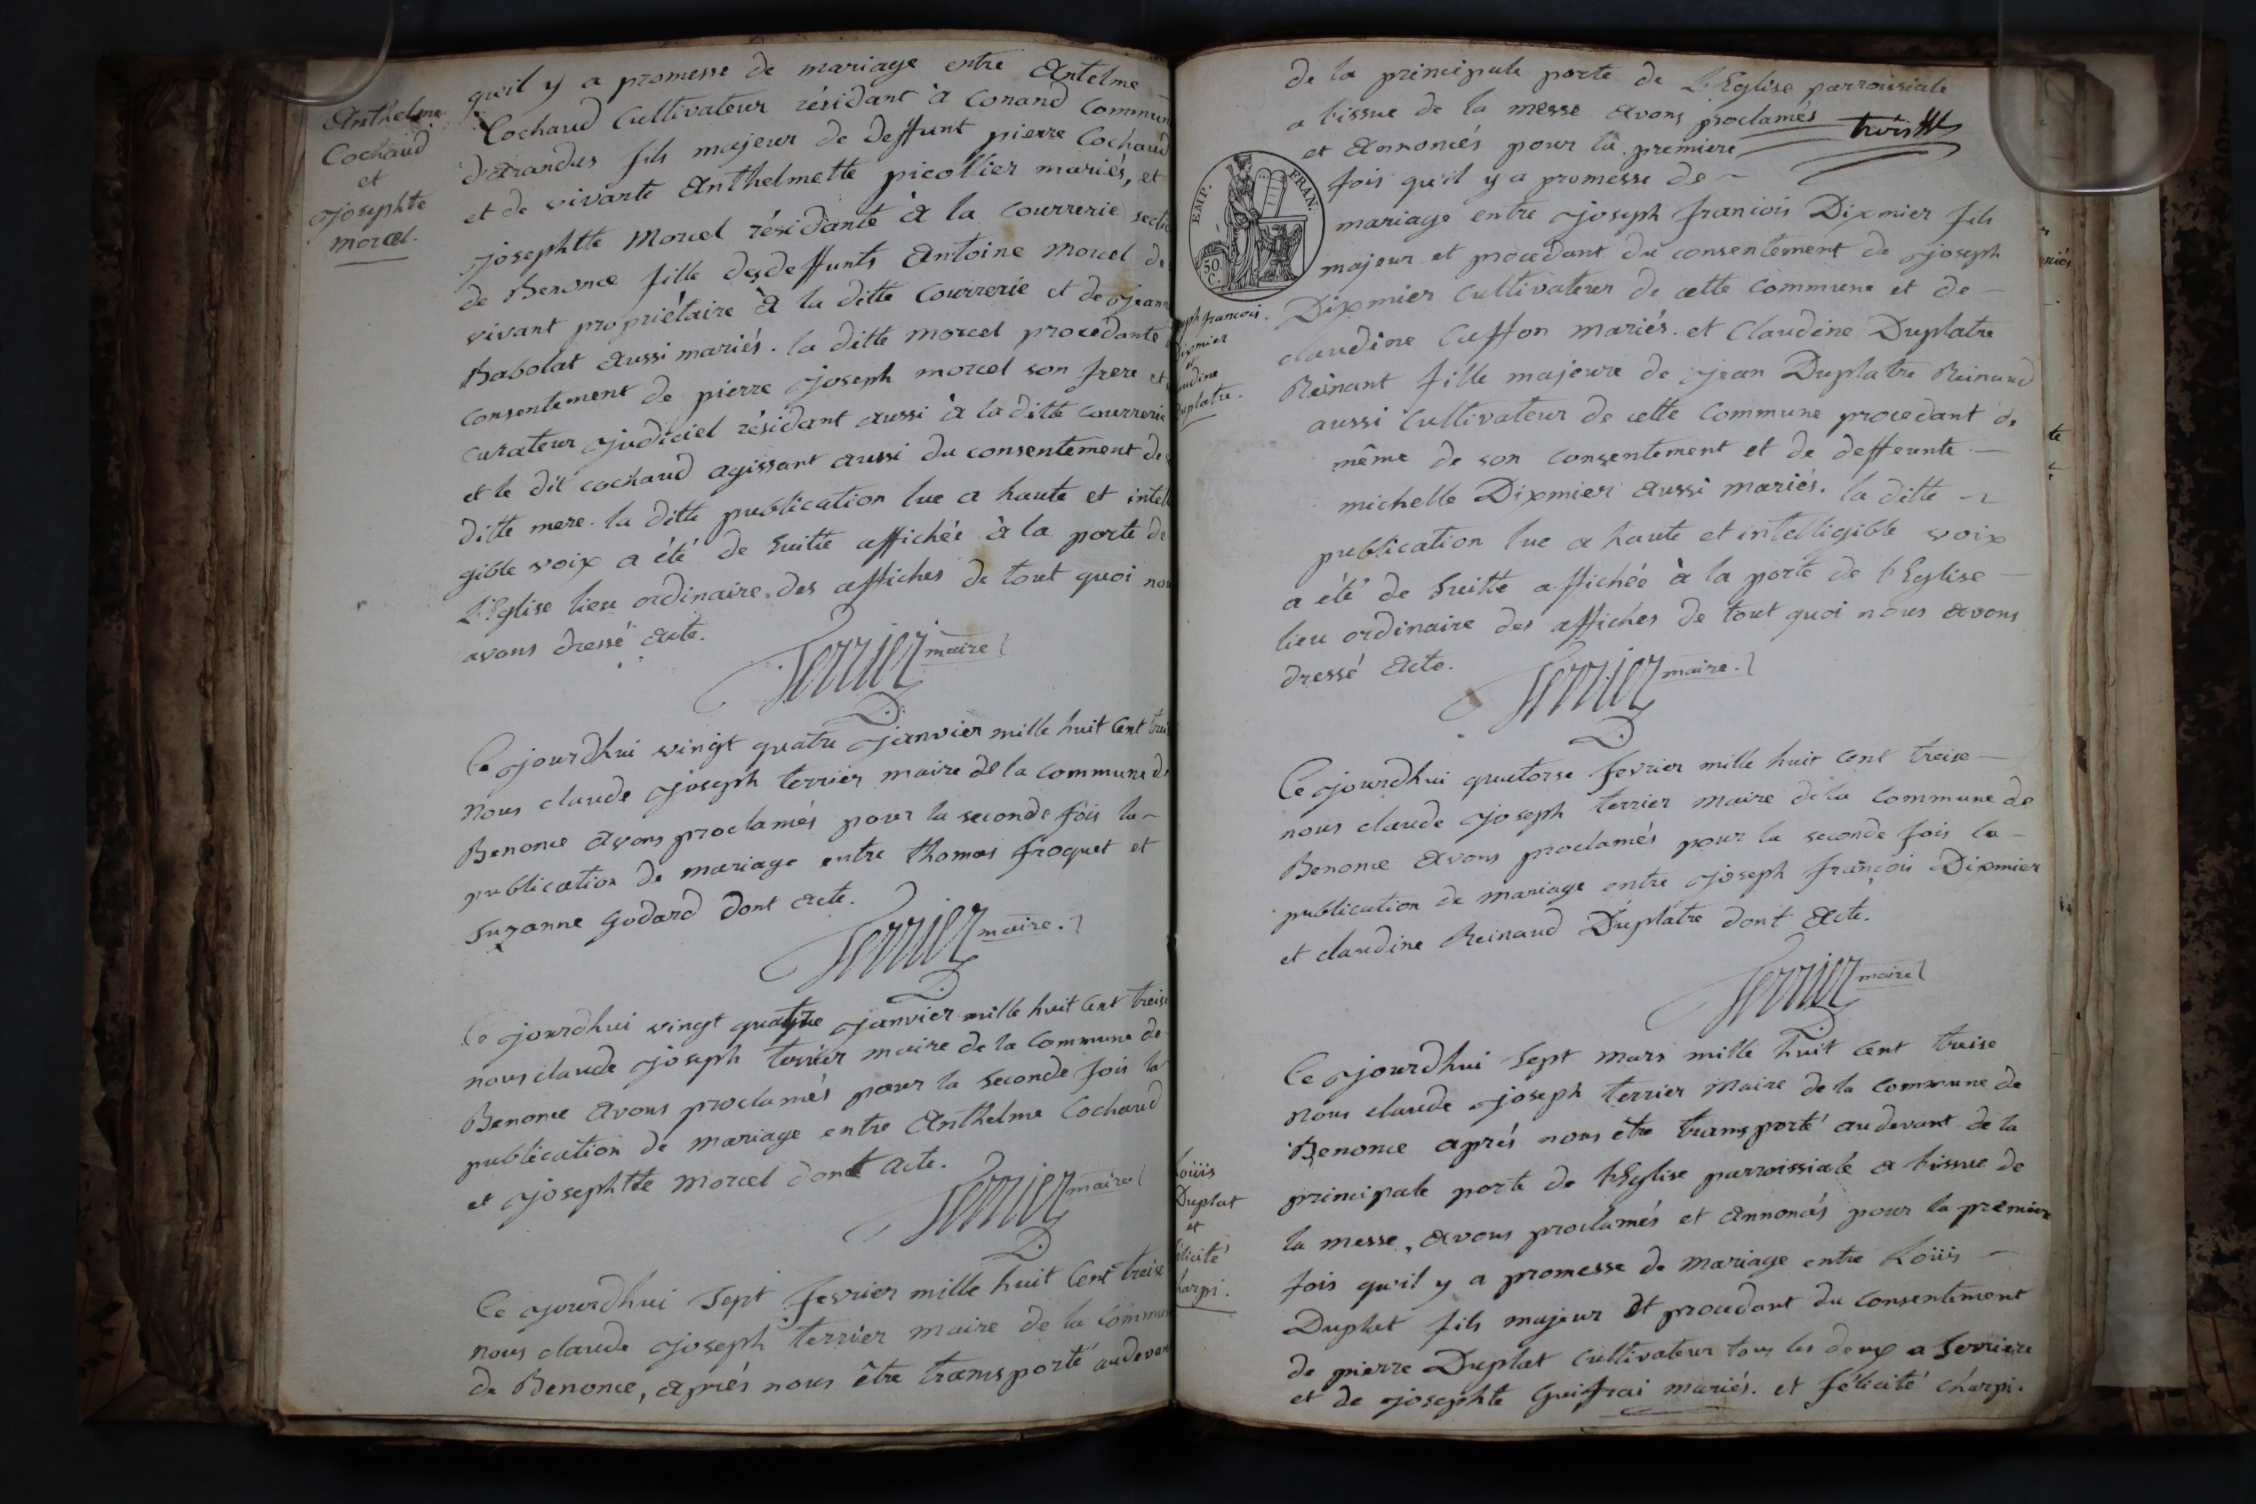 Anthelme
Cochaud
et
josephte
morcel.
qu'il y a promesse de mariage entre Antelme
Cochaud Cultivateur résidant à Conand Commun
d'arandas fils majeur de deffunt pierre Cochaud
et de vivante Anthelmette picollier mariés, et
josephtte Morcel résidante à la Courrerie secti
de Benonce fille des deffunts Antoine Morcel de
vivant propriétaire à la ditte Courrerie et de jeann
Babolat aussi mariés. la ditte morcel procedante
consentement de pierre joseph morcel son frere et
curateur judiciel résidant aussi à la ditte courrerie
et le dit cochaud agissant aussi du consentement de
ditte mere. la ditte publication lue a haute et intelli
gible voix a été de suitte affichée à la porte de
L'Eglise lieu ordinaire des affiches de tout quoi nou
avons dressé acte.
Terrier maire
Ce jourdhui vingt quatre janvier mille huit cent trei
Nous claude joseph terrier maire de la commune de
Benonce avons proclamés pour la seconde fois la
publication de mariage entre thomas froquet et
Suzanne Godard dont acte.
Terrier maire.
Ce jourdhui vingt quatre janvier mille huit cent treise
nous claude joseph terrier maire de la Commune de
Benonce avons proclamés pour la seconde fois la
publication de mariage entre Anthelme Cochaud
et josephtte Morcel dont acte.
Terrier maire
Ce jourdhui sept fevrier mille huit Cent treise
nous claude joseph terrier maire de la Commun
de Benonce, après nous être transporté au devan
de la principale porte de L'Eglise parroissiale
a l'issue de la messe avons proclamés
et annoncés pour la premiere
trois
EMP. FRAN.
50 C.
fois qu'il y a promesse de
mariage entre joseph francois Dixmier fils
majeur et procedant du consentement de joseph
Dixmier cultivateur de cette commune et de
claudine Caffon mariés. et Claudine Duplatre
Reinant fille majeure de jean Duplatre Reinaud
aussi Cultivateur de cette Commune procedant de
même de son consentement et de deffeunte
michelle Dixmier aussi mariés. la ditte
publication lue a haute et intelligible voix
a été de suitte affichée à la porte de l'Eglise
lieu ordinaire des affiches de tout quoi nous avons
dressé acte.
Terrier maire.
eph francois.
ixmier
et
audine
Duplatre.
Ce jourdhui quatorse fevrier mille huit cent treise
nous claude joseph terrier maire de la commune de
Benonce avons proclamés pour la seconde fois la
publication de mariage entre joseph françois Dixmier
et claudine Reinaud Duplatre dont acte.
Terrier maire
Ce jourdhui sept mars mille huit cent treise
Nous claude joseph terrier Maire de la commune de
Benonce aprés nous être transporté au devant de la
principale porte de l'Eglise parroissiale a l'issue de
la messe, avons proclamés et annoncés pour la premiere
fois qu'il y a promesse de mariage entre Loüis
Duplat fils majeur et procedant du consentement
de pierre Duplat cultivateur tous les deux a Serriere
et de josephte Guifrai mariés. et félicité charpi.
Loüis
Duplat
et
licité
harpi.